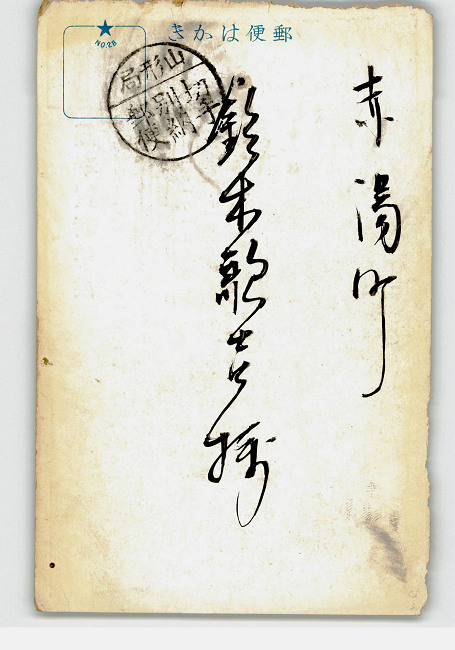 きかは便郵
NO.28
山形局
切手別納郵便
赤湯町
鈴木歌吉様